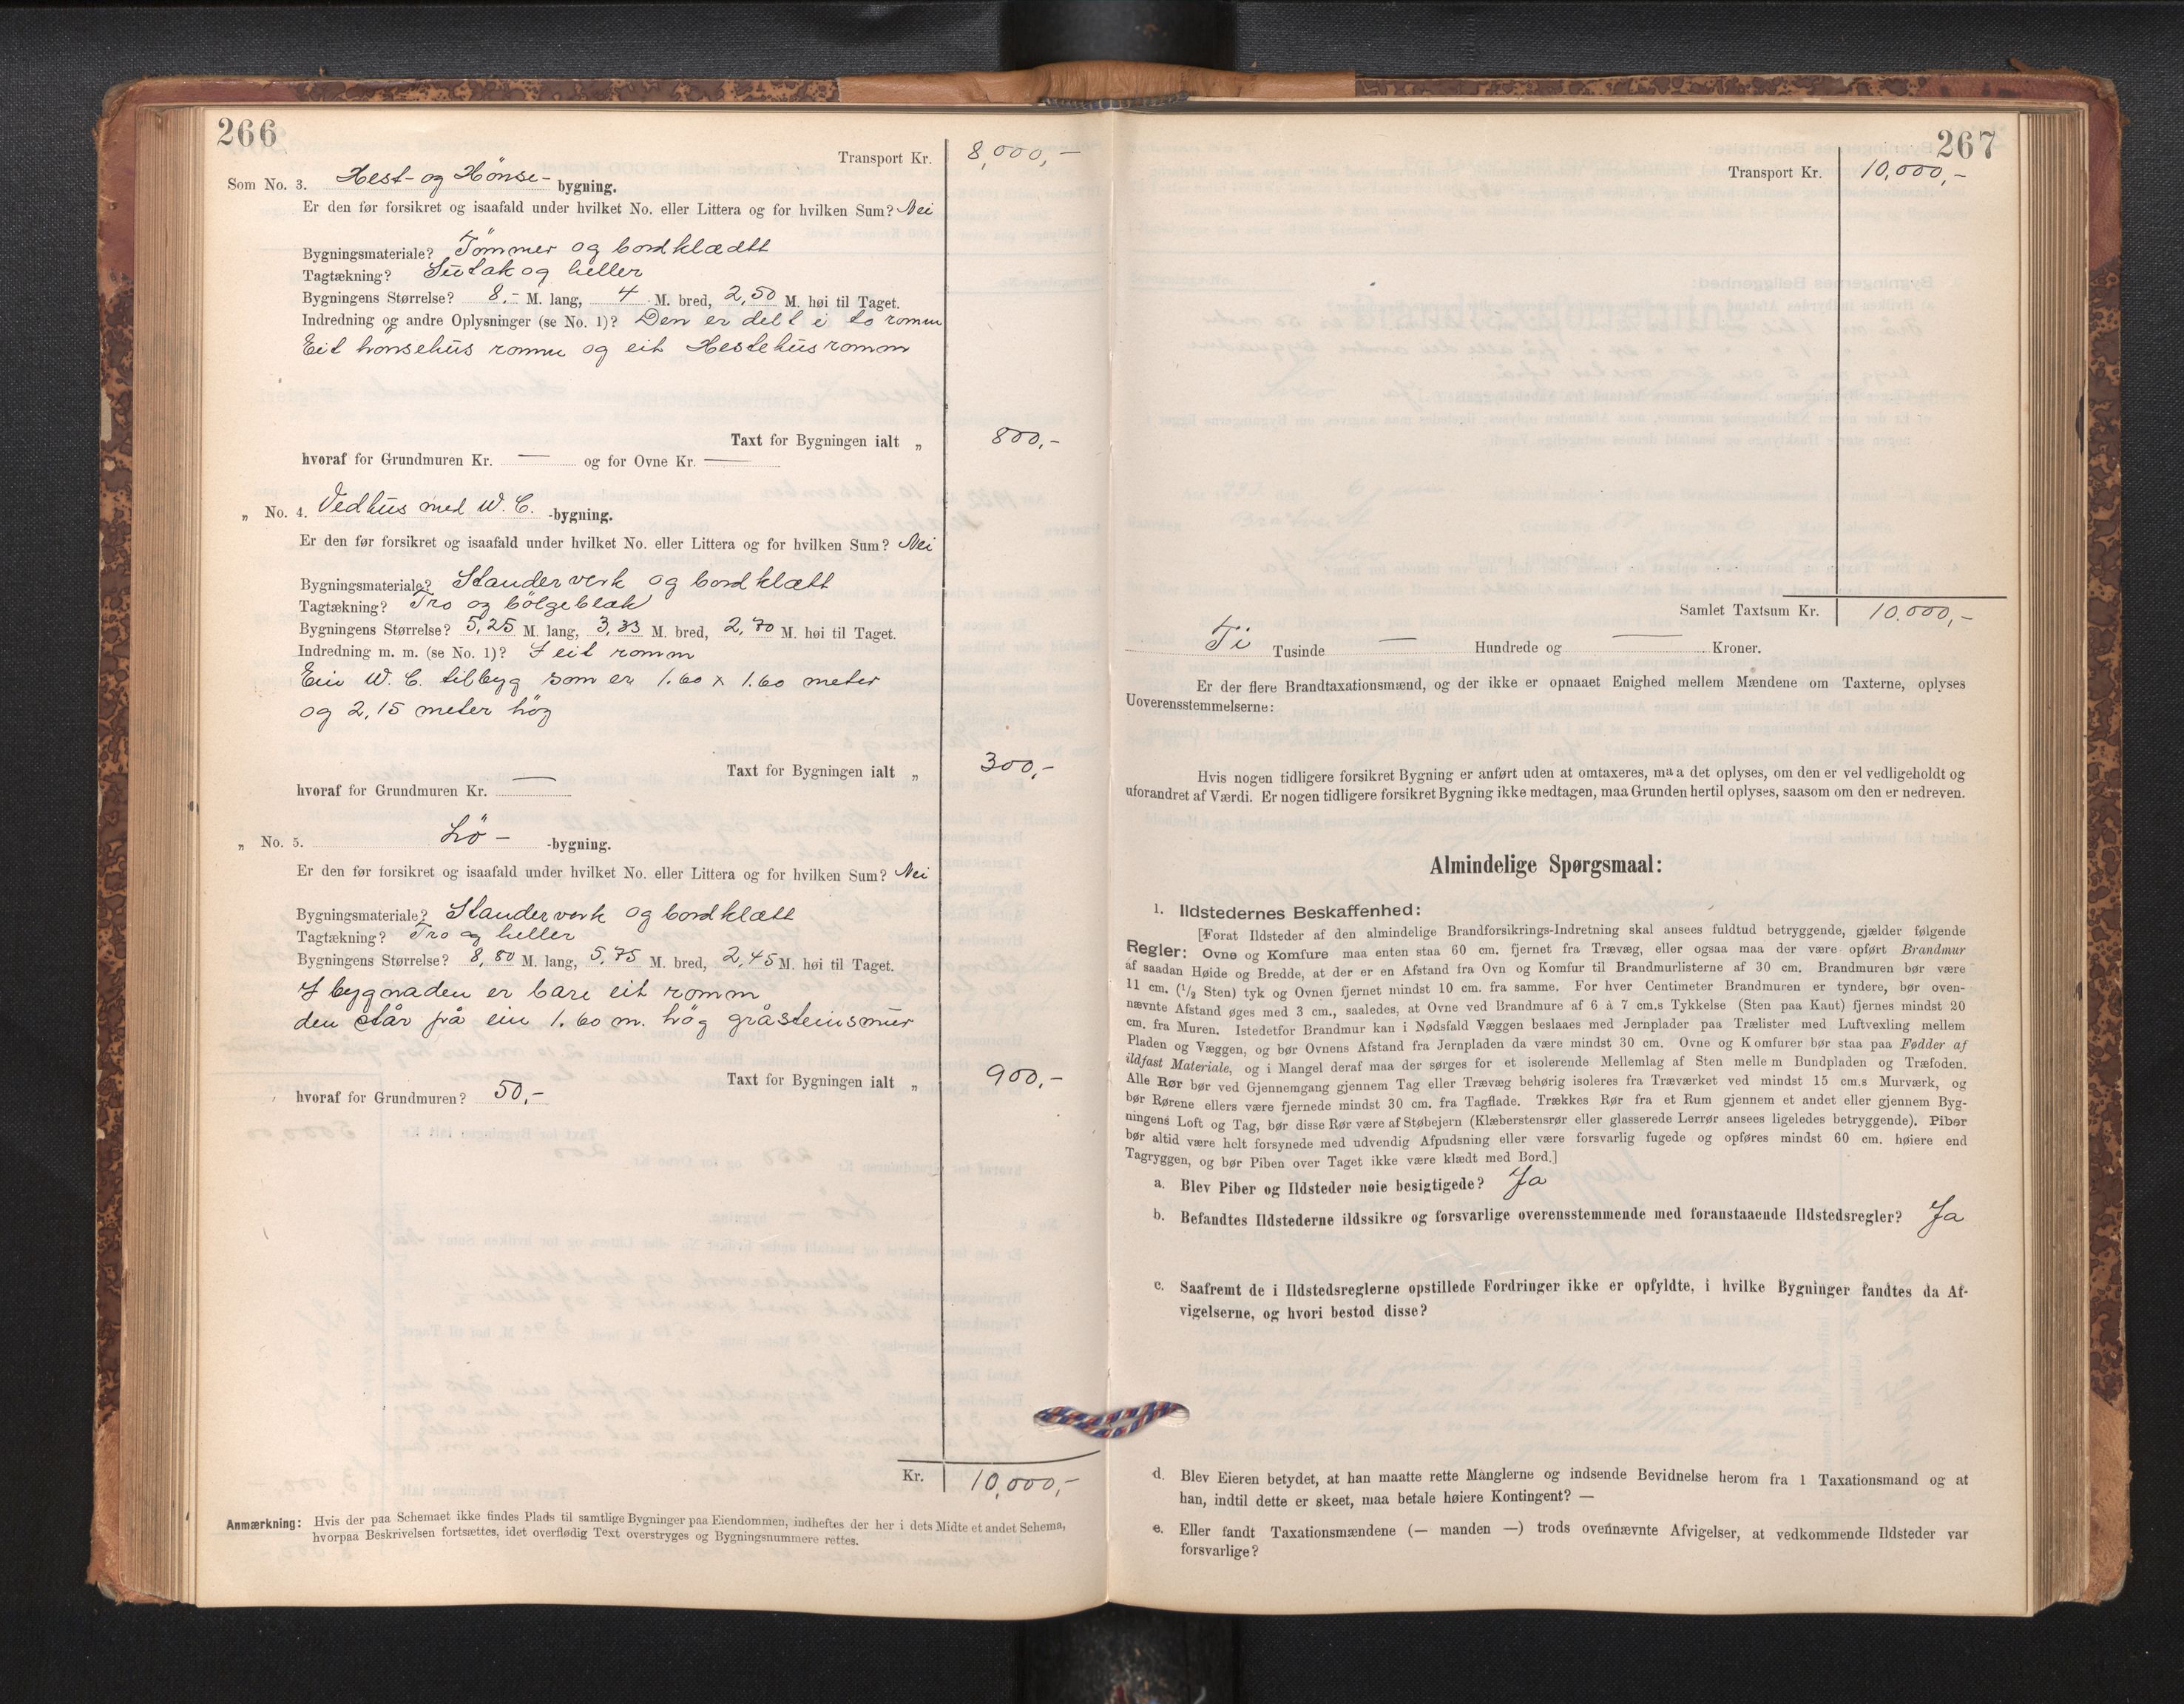 266
Transport Kr. 8,000,-
Som No. 3. Hest- og Hönse- bygning.
Er den før forsikret og isaafald under hvilket No. eller Littera og for hvilken Sum? Nei
Bygningsmateriale? Tömmer og bordklædtt
Tagtækning? Sutak og heller
Bygningens Størrelse? 8.- M. lang, 4 M. bred, 2,50 M. høi til Taget.
Indredning og andre Oplysninger (se No. 1)? Den er delt i to romm
Eit hönsehus romm og eit Hestehus romm
Taxt for Bygningen ialt „ 800,-
hvoraf for Grundmuren Kr. — og for Ovne Kr. —
„ No. 4. Vedhus med W. C. -bygning.
Er den før forsikret og isaafald under hvilket No. eller Littera og for hvilken Sum? Nei
Bygningsmateriale? Standerverk og bordklætt
Tagtækning? Tro og bölgeblek
Bygningens Størrelse? 5,25 M. lang, 3,33 M. bred, 2,70 M. høi til Taget.
Indredning m. m. (se No. 1)? I eit romm
Ein W. C. tilbyg som er 1.60 x 1.60 meter
og 2,15 meter hög
Taxt for Bygningen ialt „ 300,-
hvoraf for Grundmuren Kr. —
„ No. 5. Lö - -bygning.
Er den før forsikret og isaafald under hvilket No. eller Littera og for hvilken Sum? Nei
Bygningsmateriale? Standerverk og bordklætt
Tagtækning? Tro og heller
Bygningens Størrelse? 8,80 M. lang, 5,75 M. bred, 2,45 M. høi til Taget.
I bygnaden er bare eit romm
den står på ein 1.60 m. hög gråsteinsmur
Taxt for Bygningen ialt „ 900,-
hvoraf for Grundmuren? 50,-
Kr. 10,000,-
Anmærkning: Hvis der paa Schemaet ikke findes Plads til samtlige Bygninger paa Eiendommen, indheftes der her i dets Midte et andet Schema,
hvorpaa Beskrivelsen fortsættes, idet overflødig Text overstryges og Bygningsnummere rettes.
267
Transport Kr. 10,000,-
Samlet Taxtsum Kr. 10.000,-
Ti Tusinde — Hundrede og — Kroner.
Er der flere Brandtaxationsmænd, og der ikke er opnaaet Enighed mellem Mændene om Taxterne, oplyses
Uoverensstemmelserne:
Hvis nogen tidligere forsikret Bygning er anført uden at omtaxeres, maa det oplyses, om den er vel vedligeholdt og
uforandret af Værdi. Er nogen tidligere forsikret Bygning ikke medtagen, maa Grunden hertil oplyses, saasom om den er nedreven.
Almindelige Spørgsmaal:
1. Ildstedernes Beskaffenhed:
[Forat Ildsteder af den almindelige Brandforsikrings-Indretning skal ansees fuldtud betryggende, gjælder følgende
Regler: Ovne og Komfure maa enten staa 60 cm. fjernet fra Trævæg, eller ogsaa maa der være opført Brandmur
af saadan Høide og Bredde, at der er en Afstand fra Ovn og Komfur til Brandmurlisterne af 30 cm. Brandmuren bør være
11 cm. (1/2 Sten) tyk og Ovnen fjernet mindst 10 cm. fra samme. For hver Centimeter Brandmuren er tyndere, bør oven-
nævnte Afstand øges med 3 cm., saaledes, at Ovne ved Brandmure af 6 à 7 cm.s Tykkelse (Sten paa Kant) fjernes mindst 20
cm. fra Muren. Istedetfor Brandmur kan i Nødsfald Væggen beslaaes med Jernplader paa Trælister med Luftvexling mellem
Pladen og Væggen, og bør Ovnens Afstand fra Jernpladen da være mindst 30 cm. Ovne og Komfurer bør staa paa Fødder af
ildfast Materiale, og i Mangel deraf maa der sørges for et isolerende Mellemlag af Sten mellem Bundpladen og Træfoden.
Alle Rør bør ved Gjennemgang gjennem Tag eller Trævæg behørig isoleres fra Træværket ved mindst 15 cm.s Murværk, og
bør Rørene ellers være fjernede mindst 30 cm. fra Tagflade. Trækkes Rør fra et Rum gjennem et andet eller gjennem Byg-
ningens Loft og Tag, bør disse Rør være af Støbejern (Klæberstensrør eller glasserede Lerrør ansees ligeledes betryggende). Piber
bør altid være helt forsynede med udvendig Afpudsning eller være forsvarlig fugede og opføres mindst 60 cm. høiere end
Tagryggen, og bør Piben over Taget ikke være klædt med Bord.]
a. Blev Piber og Ildsteder nøie besigtigede? Ja
b. Befandtes Ildstederne ildssikre og forsvarlige overensstemmende med foranstaaende Ildstedsregler? Ja
c. Saafremt de i Ildstedsreglerne opstillede Fordringer ikke er opfyldte, i hvilke Bygninger fandtes da Af-
vigelserne, og hvori bestod disse?
d. Blev Eieren betydet, at han maatte rette Manglerne og indsende Bevidnelse herom fra 1 Taxationsmand og at
han, indtil dette er skeet, maa betale høiere Kontingent? —
e. Eller fandt Taxationsmændene (— manden —) trods ovennævnte Afvigelser, at vedkommende Ildsteder var
forsvarlige?